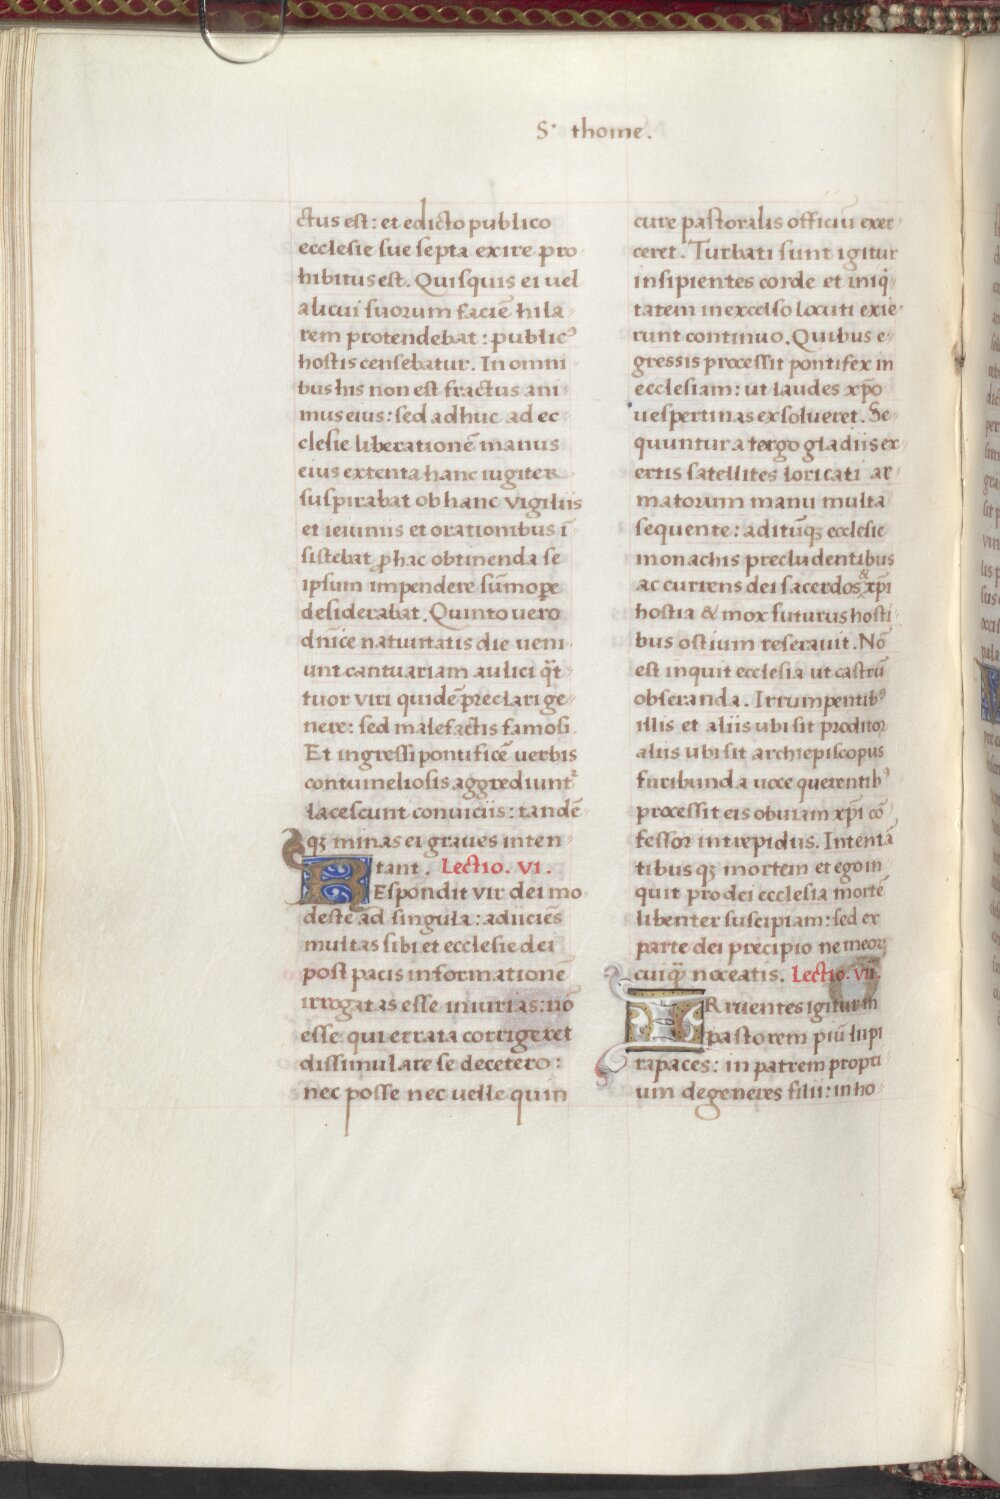 S· thome.
ctus est: et edicto publico
ecclesie sue septa exire pro-
hibitus est. Quisquis ei uel
alicui suorum faciē hila-
rem protendebat: publicꝰ
hostis censebatur. In omni-
bus his non est fractus ani-
mus eius: sed adhuc ad ec-
clesie liberationē manus
eius extenta hanc iugiter
suspirabat ob hanc vigiliis
et ieiuniis et orationibus ī-
sistebat ꝓ hac obtinenda se
ipsum impendere sūmope
desiderabat. Quinto uero
dn̄ice natiuitatis die ueni-
unt cantuariam aulici q̄t-
tuor viri quidē preclari ge-
nere: sed malefactis famosi.
Et ingressi pontificē uerbis
contumeliosis aggrediunt᷑
lacescunt conuiciis: tandē-
qꝫ minas ei graues inten-
tant. Lectio. VI.
REspondit vir dei mo-
deste ad singula: adiiciēs
multas sibi et ecclesie dei
post pacis informationē
irrogatas esse iniurias: nō
esse qui errata corrigeret
dissimulare se decetero:
nec posse nec uelle quin
cure pastoralis officiū exer-
ceret. Turbati sunt igitur
insipientes corde et iniq̄-
tatem in excelso locuti exie-
runt continuo. Quibus e-
gressis processit pontifex in
ecclesiam: ut laudes xp̄o
uespertinas exsolueret. Se-
quuntur a tergo gladiis ex-
ertis satellites loricati ar-
matorum manu multa
sequente: aditūqꝫ ecclesie
monachis precludentibus
ac currens dei sacerdos & xp̄i
hostia & mox futurus hosti-
bus ostium reserauit. Nō
est inquit ecclesia ut castrū
obseranda. Irrumpentibꝰ
illis et aliis ubi sit proditor
aliis ubi sit archiepiscopus
furibunda uoce querentibꝰ
processit eis obuiam xp̄i cō-
fessor intrepidus. Intentā-
tibus qꝫ mortem et ego in-
quit pro dei ecclesia mortē
libenter suscipiam: sed ex
parte dei precipio ne meoꝝ
cuiq̄ noceatis. Lectio. vii.
IRruentes igitur in
pastorem piū lupi
rapaces: in patrem propri-
um degeneres filii: in ho-